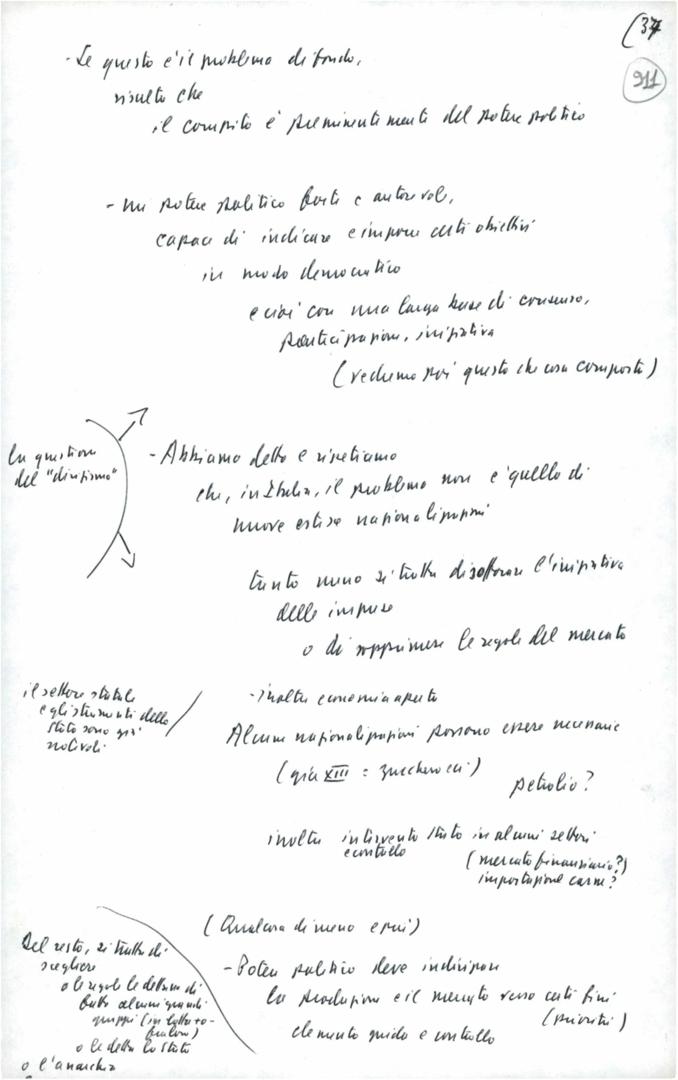 (37
911
- Se questo è il problema di fondo,
risulta che
il compito è preminentemente del potere politico
- un potere politico forte e autorevole,
capace di indicare e imporre certi obiettivi
in modo democratico
e cioè con una larga base di consenso,
partecipazione, iniziativa
(vedremo poi questo che cosa comporti)
La questione
del "dirigismo"
- Abbiamo detto e ripetiamo
che, in Italia, il problema non è quello di
nuove estese nazionalizzazioni
tanto meno si tratta di soffocare l'iniziativa
delle imprese
o di sopprimere le regole del mercato
il settore statale
e gli strumenti dello
Stato sono già
notevoli
- inoltre economia aperta
Alcune nazionalizzazioni possono essere necessarie
(già XIII = zucchero ecc)
petrolio?
inoltre intervento Stato in alcuni settori
e controllo
(mercato finanziario?)
importazione carne?
(Qualcosa di meno e più)
Del resto, si tratta di
scegliere
o le regole le dettano di
fatto alcuni grandi
gruppi (in lotta
o le detta lo Stato
o l'anarchia
- Potere politico deve indirizzare
la produzione e il mercato verso certi fini
(priorità)
elemento guida e controllo